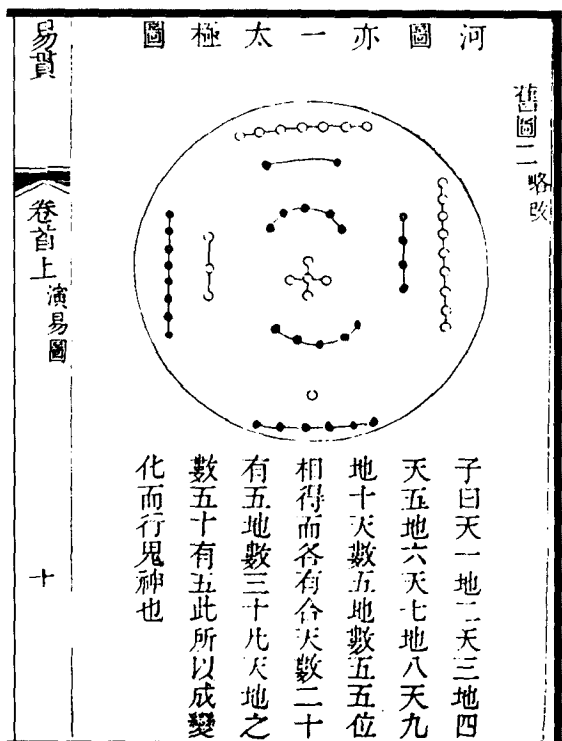 河圖亦一太極圖
舊圖二 略改
子曰天一地二天三地四
天五地六天七地八天九
地十天數五地數五五位
相得而各有合天數二十
有五地數三十凡天地之
數五十有五此所以成變
化而行鬼神也
易貫
卷首上 演易圖
十